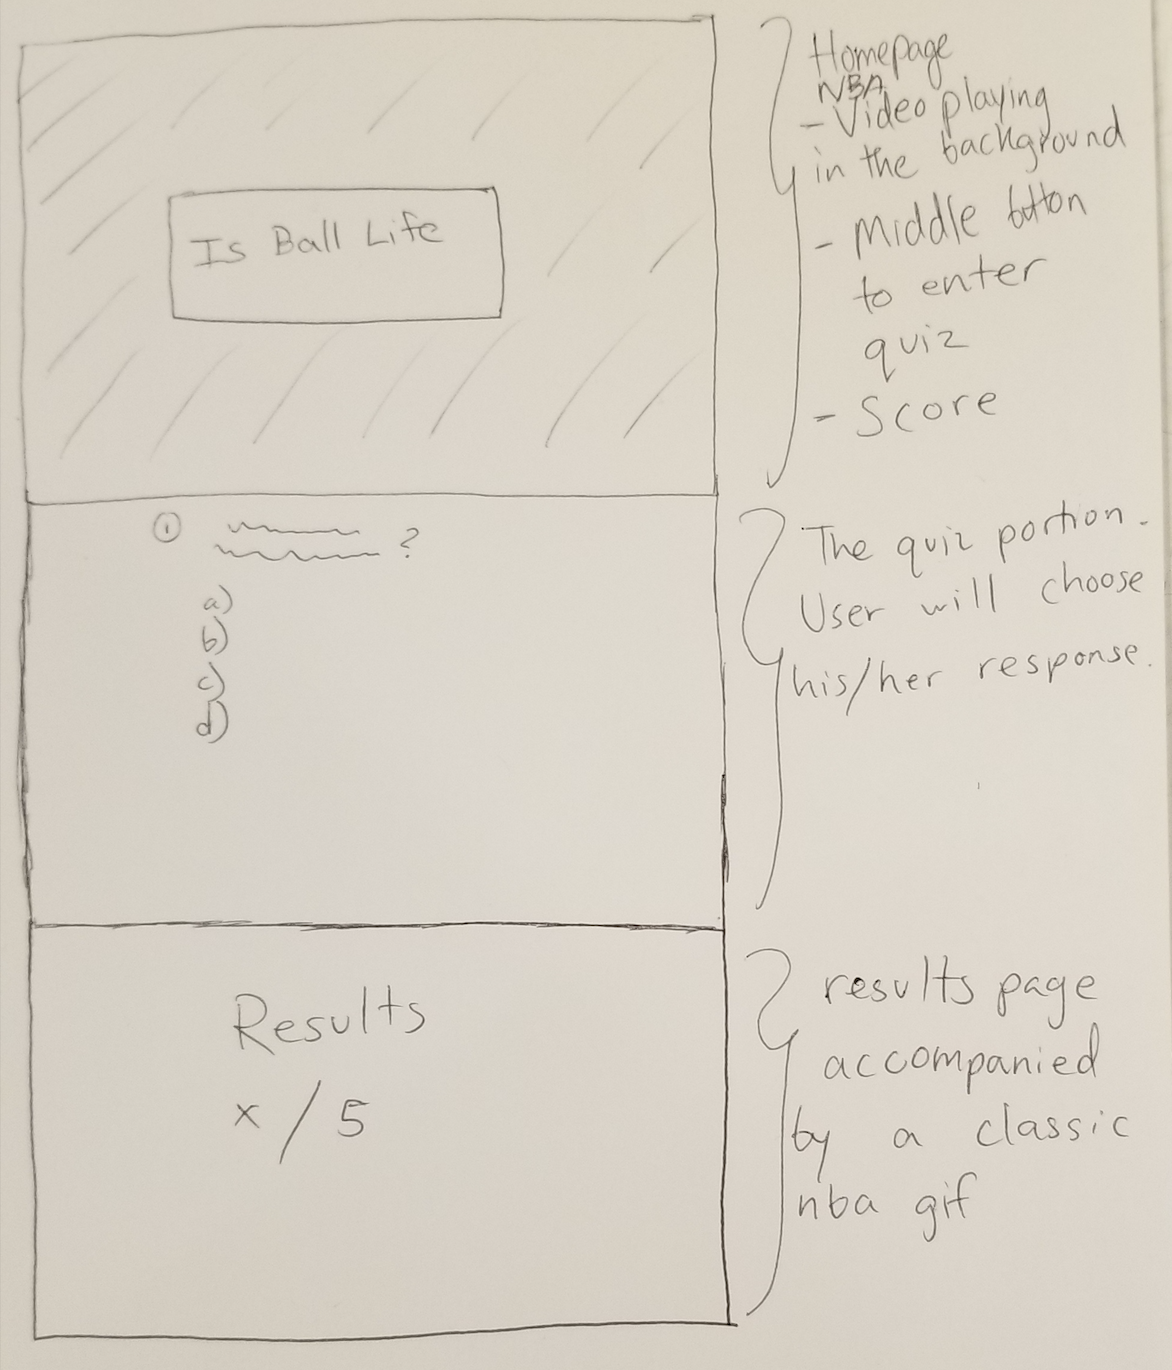 Is Ball Life
Homepage
NBA
- Video playing
in the background
- Middle button
to enter
quiz
- Score
① ?
a)
b)
c)
d)
The quiz portion.
User will choose
his/her response.
Results
x / 5
results page
accompanied
by a classic
nba gif